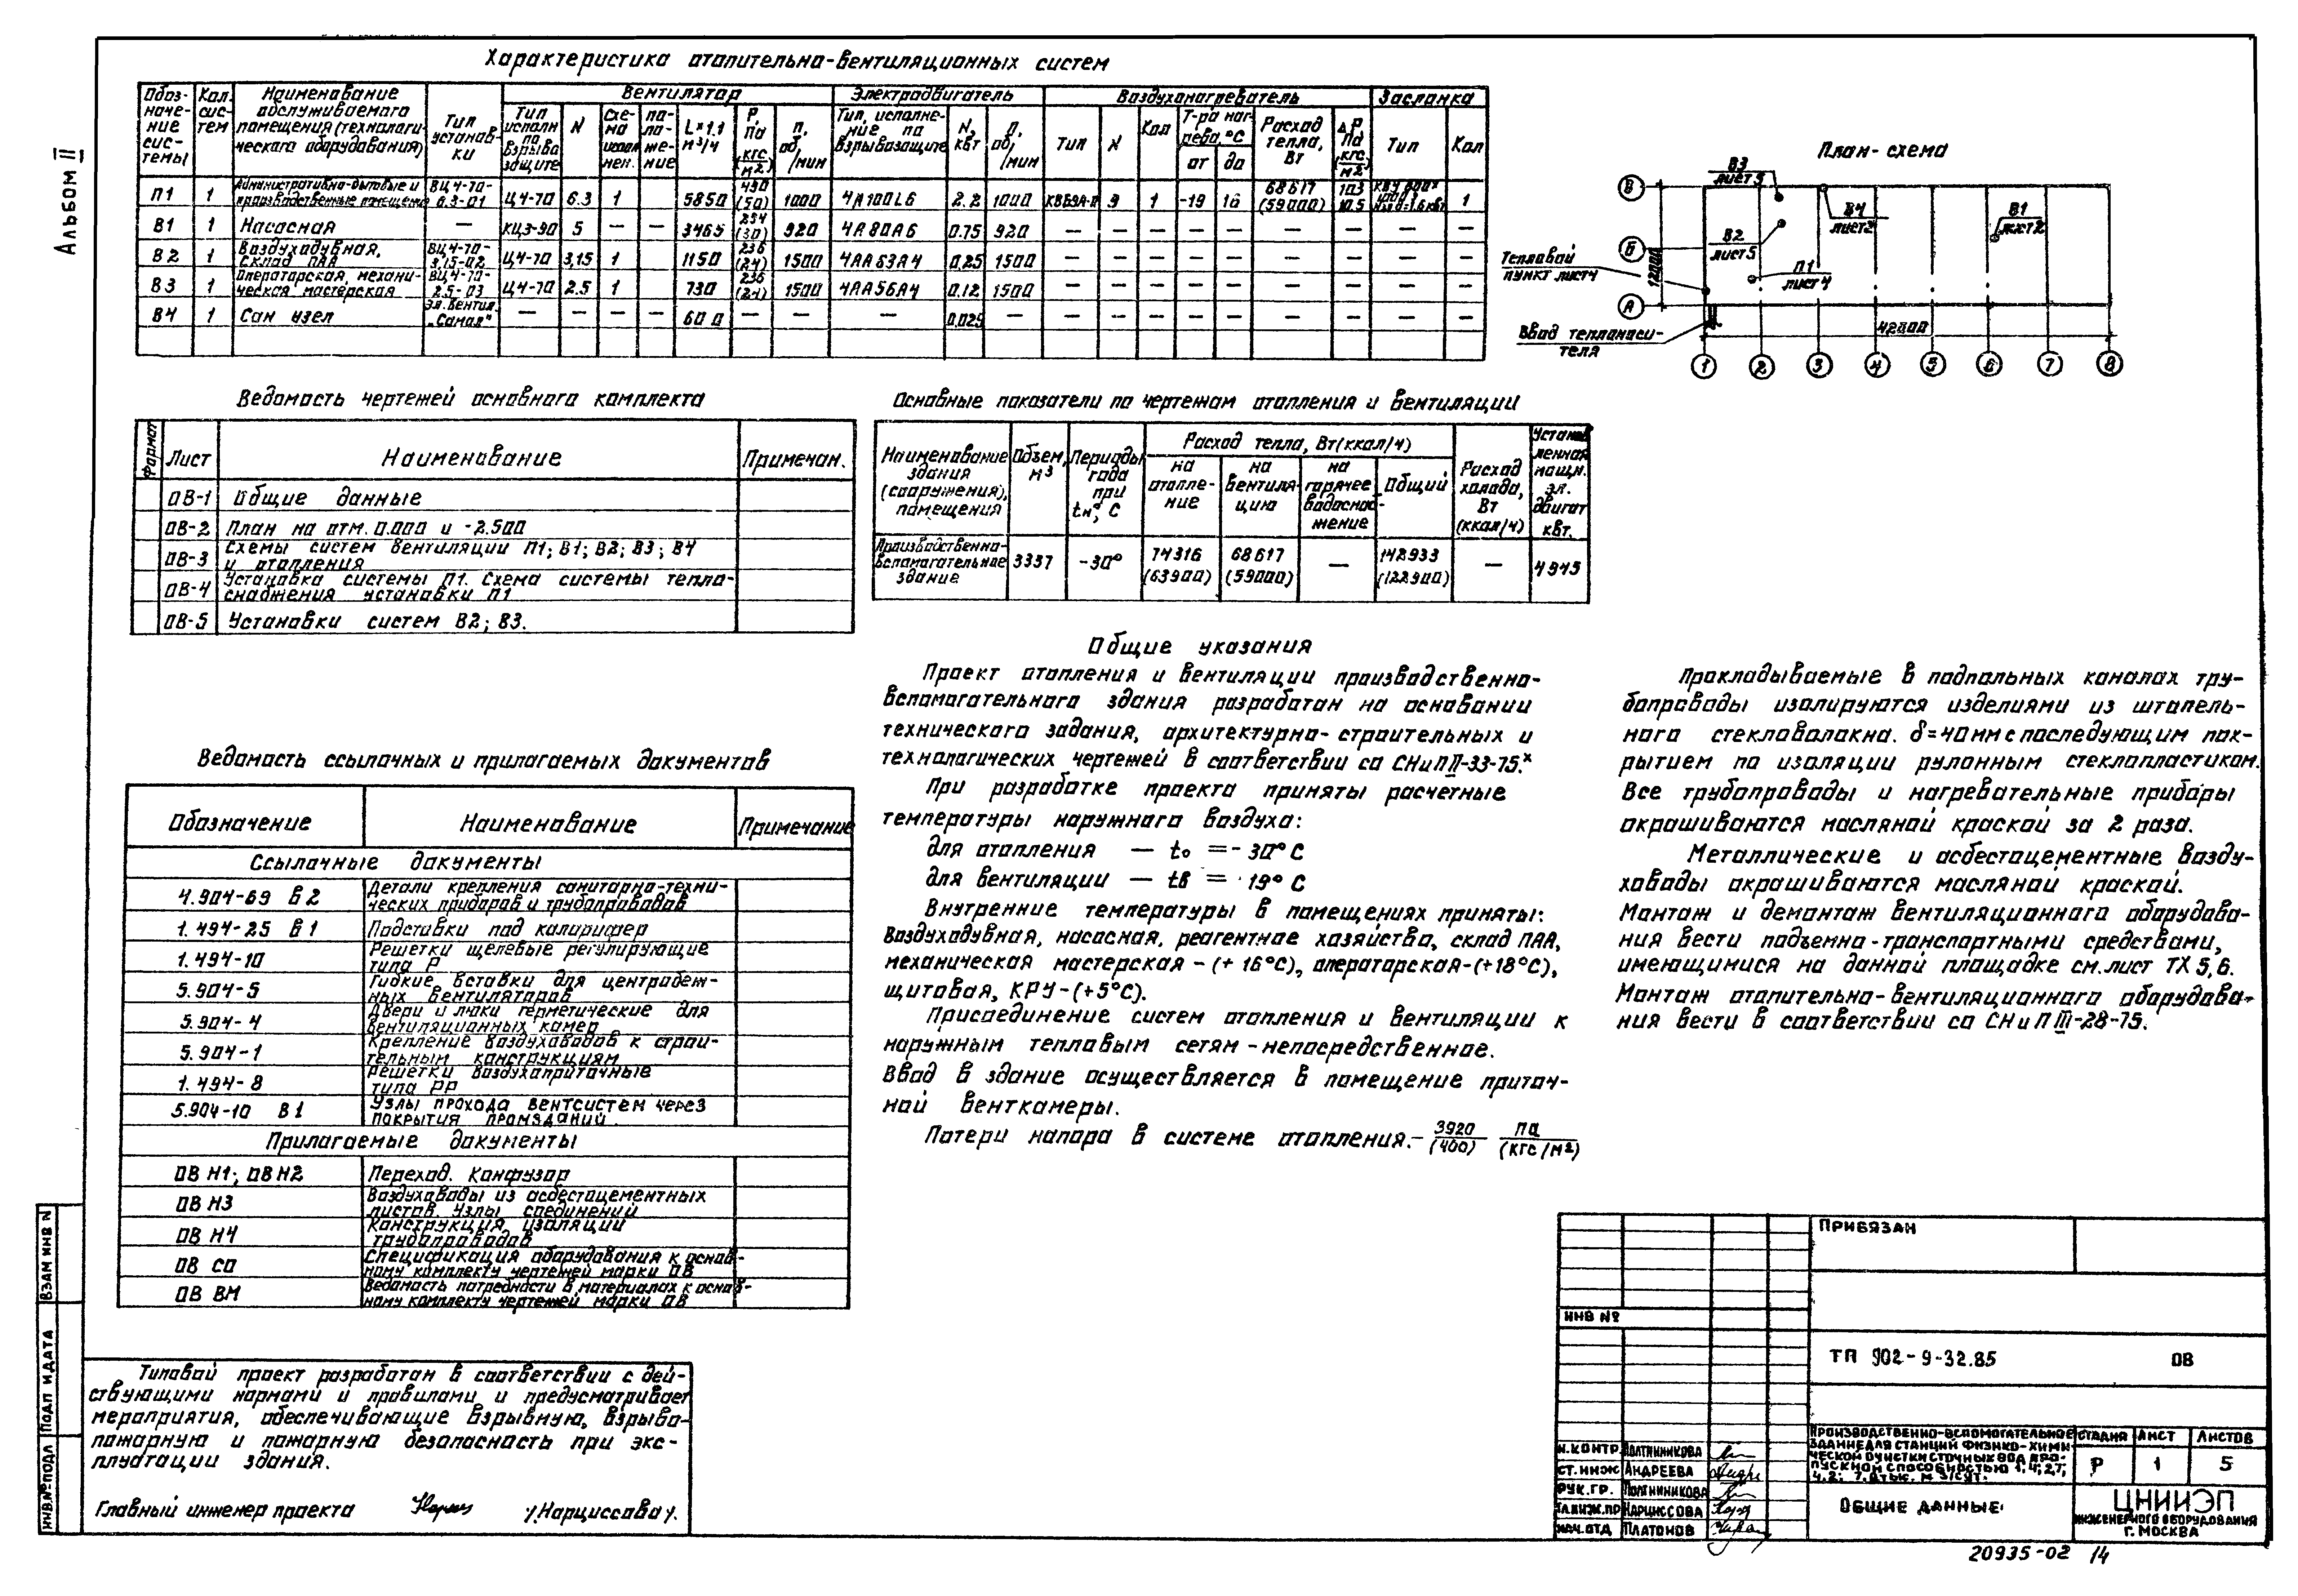 Альбом II
Характеристика отопительно-вентиляционных систем
Обозначение системы | Кол. систем | Наименование обслуживаемого помещения (технологического оборудования) | Тип установки | Вентилятор | Электродвигатель | Воздухонагреватель | Заслонка
Тип исполн по взрывозащите | N | Схема исполнен. | положение | L×1.1 м³/ч | Р, Па (кгс/м2) | п, об/мин | Тип, исполнение по взрывозащите | N, кВт | п, об/мин | Тип | N | Кол | Т-ра нагрева, °С от до | Расход тепла, Вт | ΔР Па (кгс/м2) | Тип | Кол
П1 1 Административно-бытовые и производственные помещения ВЦ4-70-6.3-01 Ц4-70 6.3 1 5850 490 (50) 1000 4А100L6 2.2 1000 9 1 -19 16 68617 (59000) 103 10.5 1
В1 1 Насосная — КЦ3-90 5 — — 3465 (30) 920 4А80А6 0.75 920 — — — — — — — — —
В2 1 Воздуходувная, склад ПАА ВЦ4-70-3,15-02 Ц4-70 3,15 1 1150 236 (24) 1500 4АА63А4 0,25 1500 — — — — — — — — —
В3 1 Операторская, механическая мастерская ВЦ4-70-2.5-03 Ц4-70 2.5 1 730 236 (24) 1500 4АА56А4 0.12 1500 — — — — — — — — —
В4 1 Сан узел Эл.вентил. „Самал" — — — — 600 — — — 0.025 — — — — — — — — — —
План-схема
В3
лист5
В4
лист2
В1
лист2
В2
лист5
П1
лист4
Тепловой
пункт лист4
Ввод теплоноси-
теля
В
Б
А
12000
42000
1 2 3 4 5 6 7 8
Ведомость чертежей основного комплекта
Формат | Лист | Наименование | Примечан.
ОВ-1 Общие данные
ОВ-2 План на отм. 0.000 и -2.500
ОВ-3 Схемы систем вентиляции П1; В1; В2; В3; В4
и отопления
ОВ-4 Установка системы П1. Схема системы тепло-
снабжения установки П1
ОВ-5 Установки систем В2; В3.
Основные показатели по чертежам отопления и вентиляции
Наименование здания (сооружения), помещения | Объем, м³ | Периоды года при tн, °С | Расход тепла, Вт(ккал/ч) | Расход холода, Вт (ккал/ч) | Установленная мощн. эл. двигат кВт.
на отопление | на вентиляцию | на горячее водоснабжение | Общий
Производственно-вспомогательное здание 3337 -30° 74316 (63900) 68617 (59000) — 142933 (122900) — 4945
Ведомость ссылочных и прилагаемых документов
Обозначение | Наименование | Примечание
Ссылочные документы
4.904-69 В2 Детали крепления санитарно-техни-
ческих приборов и трубопроводов
1.494-25 В1 Подставки под калорифер
1.494-10 Решетки щелевые регулирующие
типа Р
5.904-5 Гибкие вставки для центробеж-
ных вентиляторов
5.904-4 Двери и люки герметические для
вентиляционных камер
5.904-1 Крепление воздуховодов к строи-
тельным конструкциям
1.494-8 Решетки воздухоприточные
типа РР
5.904-10 В1 Узлы прохода вентсистем через
покрытия промзданий.
Прилагаемые документы
ОВ Н1; ОВ Н2 Переход. Конфузор
ОВ Н3 Воздуховоды из асбестоцементных
листов. Узлы соединений
ОВ Н4 Конструкция изоляции
трубопроводов
ОВ СО Спецификация оборудования к основ-
ному комплекту чертежей марки ОВ
ОВ ВМ Ведомость потребности в материалах к основ-
ному комплекту чертежей марки ОВ
Общие указания
Проект отопления и вентиляции производственно-
вспомогательного здания разработан на основании
технического задания, архитектурно-строительных и
технологических чертежей в соответствии со СНиП II-33-75.ˣ
При разработке проекта приняты расчетные
температуры наружного воздуха:
для отопления — to = -30° С
для вентиляции — tв = -19° С
Внутренние температуры в помещениях приняты:
Воздуходувная, насосная, реагентное хозяйство, склад ПАА,
механическая мастерская - (+ 16°С), операторская-(+18°С),
щитовая, КРУ-(+5°С).
Присоединение систем отопления и вентиляции к
наружным тепловым сетям - непосредственное.
Ввод в здание осуществляется в помещение приточ-
ной венткамеры.
Потери напора в системе отопления.- 3920/(400) Па/(кгс/м2)
Прокладываемые в подпольных каналах тру-
бопроводы изолируются изделиями из штапель-
ного стекловолокна. δ=40мм с последующим пок-
рытием по изоляции рулонным стеклопластиком.
Все трубопроводы и нагревательные приборы
окрашиваются масляной краской за 2 раза.
Металлические и асбестоцементные возду-
ховоды окрашиваются масляной краской.
Монтаж и демонтаж вентиляционного оборудова-
ния вести подъемно-транспортными средствами,
имеющимися на данной площадке см. лист ТХ 5,6.
Монтаж отопительно-вентиляционного оборудова-
ния вести в соответствии со СНиП III-28-75.
Типовой проект разработан в соответствии с дей-
ствующими нормами и правилами и предусматривает
мероприятия, обеспечивающие взрывную, взрыво-
пожарную и пожарную безопасность при экс-
плуатации здания.
Главный инженер проекта /Нарциссова/.
ВЗАМ ИНВ N
ПОДП И ДАТА
ИНВ.№ ПОДЛ
ПРИВЯЗАН
ИНВ №
ТП 902-9-32.85 ОВ
Н.КОНТР. ПОЛТИННИКОВА
СТ.ИНЖ АНДРЕЕВА
РУК.ГР. ПОЛТИННИКОВА
ГЛ.ИНЖ.ПР НАРЦИССОВА
НАЧ.ОТД ПЛАТОНОВ
ПРОИЗВОДСТВЕННО-ВСПОМОГАТЕЛЬНОЕ
ЗДАНИЕ ДЛЯ СТАНЦИЙ ФИЗИКО-ХИМИ
ЧЕСКОЙ ОЧИСТКИ СТОЧНЫХ ВОД ПРО-
ПУСКНОЙ СПОСОБНОСТЬЮ 1,4; 2,7;
4,2; 7,0 ТЫС. М3/СУТ.
СТАДИЯ ЛИСТ ЛИСТОВ
Р 1 5
ОБЩИЕ ДАННЫЕ
ЦНИИЭП
ИНЖЕНЕРНОГО ОБОРУДОВАНИЯ
Г. МОСКВА
20935-02 14